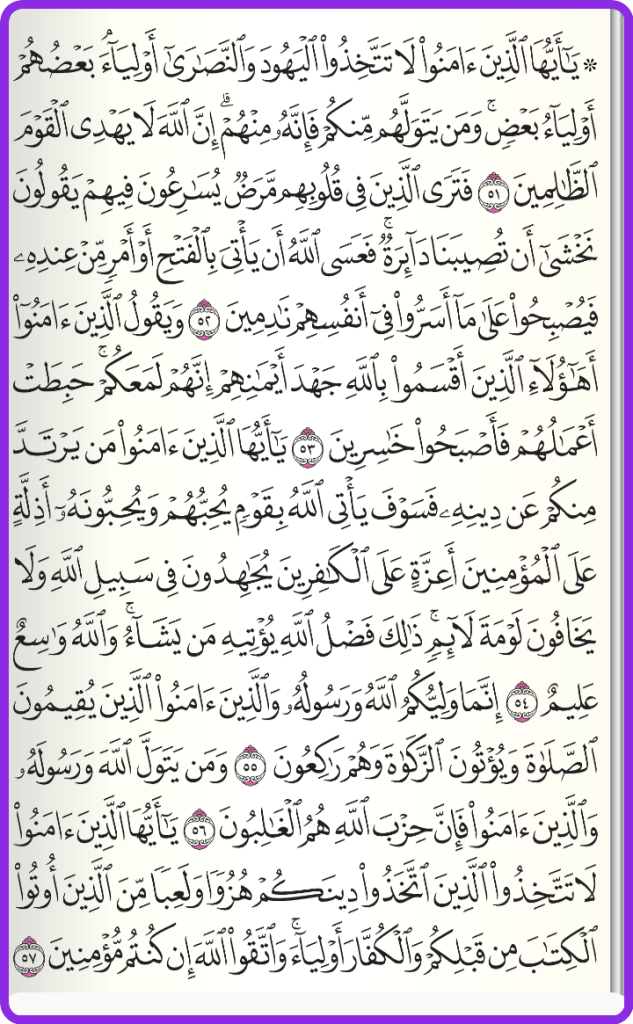 ۞ يَـٰٓأَيُّهَا ٱلَّذِينَ ءَامَنُوا۟ لَا تَتَّخِذُوا۟ ٱلْيَهُودَ وَٱلنَّصَـٰرَىٰٓ أَوْلِيَآءَۘ بَعْضُهُمْ
أَوْلِيَآءُ بَعْضٍۚ وَمَن يَتَوَلَّهُم مِّنكُمْ فَإِنَّهُۥ مِنْهُمْۗ إِنَّ ٱللَّهَ لَا يَهْدِى ٱلْقَوْمَ
ٱلظَّـٰلِمِينَ ٥١ فَتَرَى ٱلَّذِينَ فِى قُلُوبِهِم مَّرَضٌ يُسَـٰرِعُونَ فِيهِمْ يَقُولُونَ
نَخْشَىٰٓ أَن تُصِيبَنَا دَآئِرَةٌۚ فَعَسَى ٱللَّهُ أَن يَأْتِىَ بِٱلْفَتْحِ أَوْ أَمْرٍ مِّنْ عِندِهِۦ
فَيُصْبِحُوا۟ عَلَىٰ مَآ أَسَرُّوا۟ فِىٓ أَنفُسِهِمْ نَـٰدِمِينَ ٥٢ وَيَقُولُ ٱلَّذِينَ ءَامَنُوٓا۟
أَهَـٰٓؤُلَآءِ ٱلَّذِينَ أَقْسَمُوا۟ بِٱللَّهِ جَهْدَ أَيْمَـٰنِهِمْ إِنَّهُمْ لَمَعَكُمْۚ حَبِطَتْ
أَعْمَـٰلُهُمْ فَأَصْبَحُوا۟ خَـٰسِرِينَ ٥٣ يَـٰٓأَيُّهَا ٱلَّذِينَ ءَامَنُوا۟ مَن يَرْتَدَّ
مِنكُمْ عَن دِينِهِۦ فَسَوْفَ يَأْتِى ٱللَّهُ بِقَوْمٍ يُحِبُّهُمْ وَيُحِبُّونَهُۥٓ أَذِلَّةٍ
عَلَى ٱلْمُؤْمِنِينَ أَعِزَّةٍ عَلَى ٱلْكَـٰفِرِينَ يُجَـٰهِدُونَ فِى سَبِيلِ ٱللَّهِ وَلَا
يَخَافُونَ لَوْمَةَ لَآئِمٍۚ ذَٰلِكَ فَضْلُ ٱللَّهِ يُؤْتِيهِ مَن يَشَآءُۚ وَٱللَّهُ وَٰسِعٌ
عَلِيمٌ ٥٤ إِنَّمَا وَلِيُّكُمُ ٱللَّهُ وَرَسُولُهُۥ وَٱلَّذِينَ ءَامَنُوا۟ ٱلَّذِينَ يُقِيمُونَ
ٱلصَّلَوٰةَ وَيُؤْتُونَ ٱلزَّكَوٰةَ وَهُمْ رَٰكِعُونَ ٥٥ وَمَن يَتَوَلَّ ٱللَّهَ وَرَسُولَهُۥ
وَٱلَّذِينَ ءَامَنُوا۟ فَإِنَّ حِزْبَ ٱللَّهِ هُمُ ٱلْغَـٰلِبُونَ ٥٦ يَـٰٓأَيُّهَا ٱلَّذِينَ ءَامَنُوا۟
لَا تَتَّخِذُوا۟ ٱلَّذِينَ ٱتَّخَذُوا۟ دِينَكُمْ هُزُوًا وَلَعِبًا مِّنَ ٱلَّذِينَ أُوتُوا۟
ٱلْكِتَـٰبَ مِن قَبْلِكُمْ وَٱلْكُفَّارَ أَوْلِيَآءَۚ وَٱتَّقُوا۟ ٱللَّهَ إِن كُنتُم مُّؤْمِنِينَ ٥٧